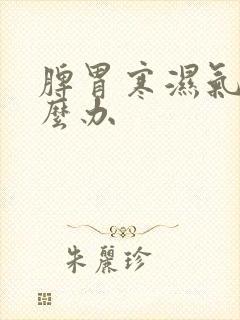 脾胃寒濕氣
麼办
朱麗珍